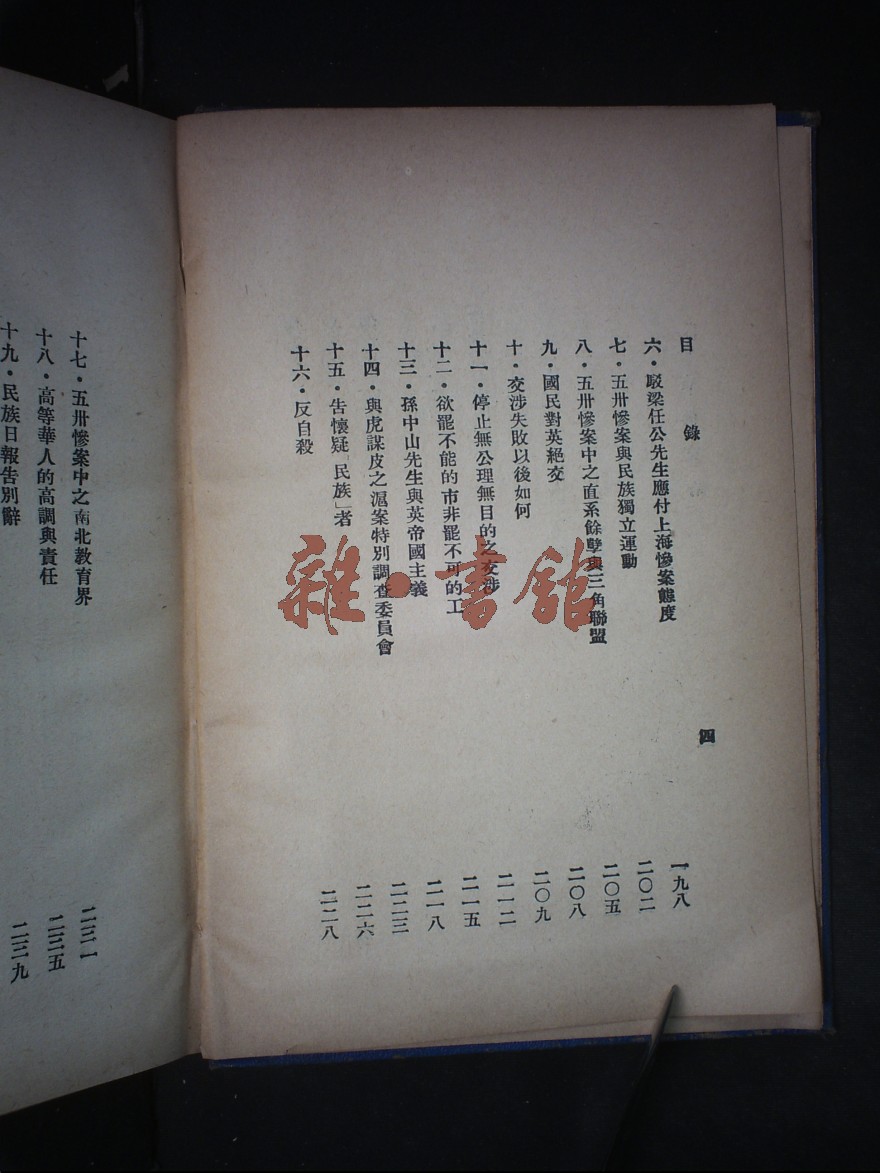 目錄
四
六．駁梁任公先生應付上海慘案態度 一九八
七．五卅慘案與民族獨立運動 二〇二
八．五卅慘案中之直系餘孽與三角聯盟 二〇五
九．國民對英絕交 二〇八
十．交涉失敗以後如何 二〇九
十一．停止無公理無目的之交涉 二一二
十二．欲罷不能的市非罷不可的工 二一五
十三．孫中山先生與英帝國主義 二一八
十四．與虎謀皮之滬案特別調查委員會 二二三
十五．告懷疑「民族」者 二二六
十六．反自殺 二二八
十七．五卅慘案中之南北教育界 二三一
十八．高等華人的高調與責任 二三五
十九．民族日報告別辭 二三九
雜·書館